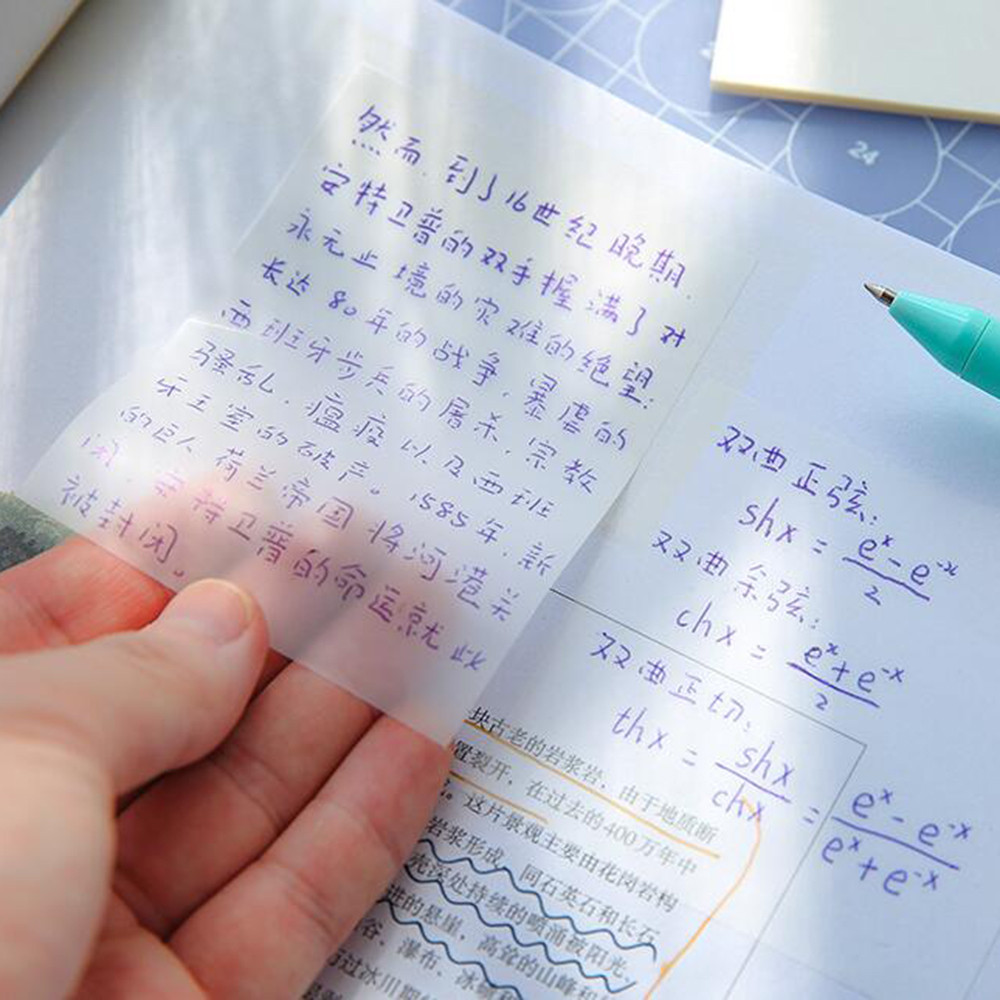 24
然而.到了16世纪晚期.
安特卫普的双手握满了对
永无止境的灾难的绝望:
长达80年的战争,暴虐的
西班牙步兵的屠杀,宗教
骚乱.瘟疫以及西班
牙王室的破产。1585年.新
的巨人荷兰帝国将河港关
闭.安特卫普的命运就此
被封闭。
双曲正弦:
shx = (e^x - e^-x)/2
双曲余弦:
chx = (e^x + e^-x)/2
双曲正切:
thx = shx/chx = (e^x - e^-x)/(e^x + e^-x)
块古老的岩浆岩,由于地质断
置裂开,在过去的400万年中
。这片景观主要由花岗岩构
岩浆形成,同石英石和长石
深处持续的喷涌被阳光、
进的悬崖,高耸的山峰和
谷、瀑布、冰
过冰川期